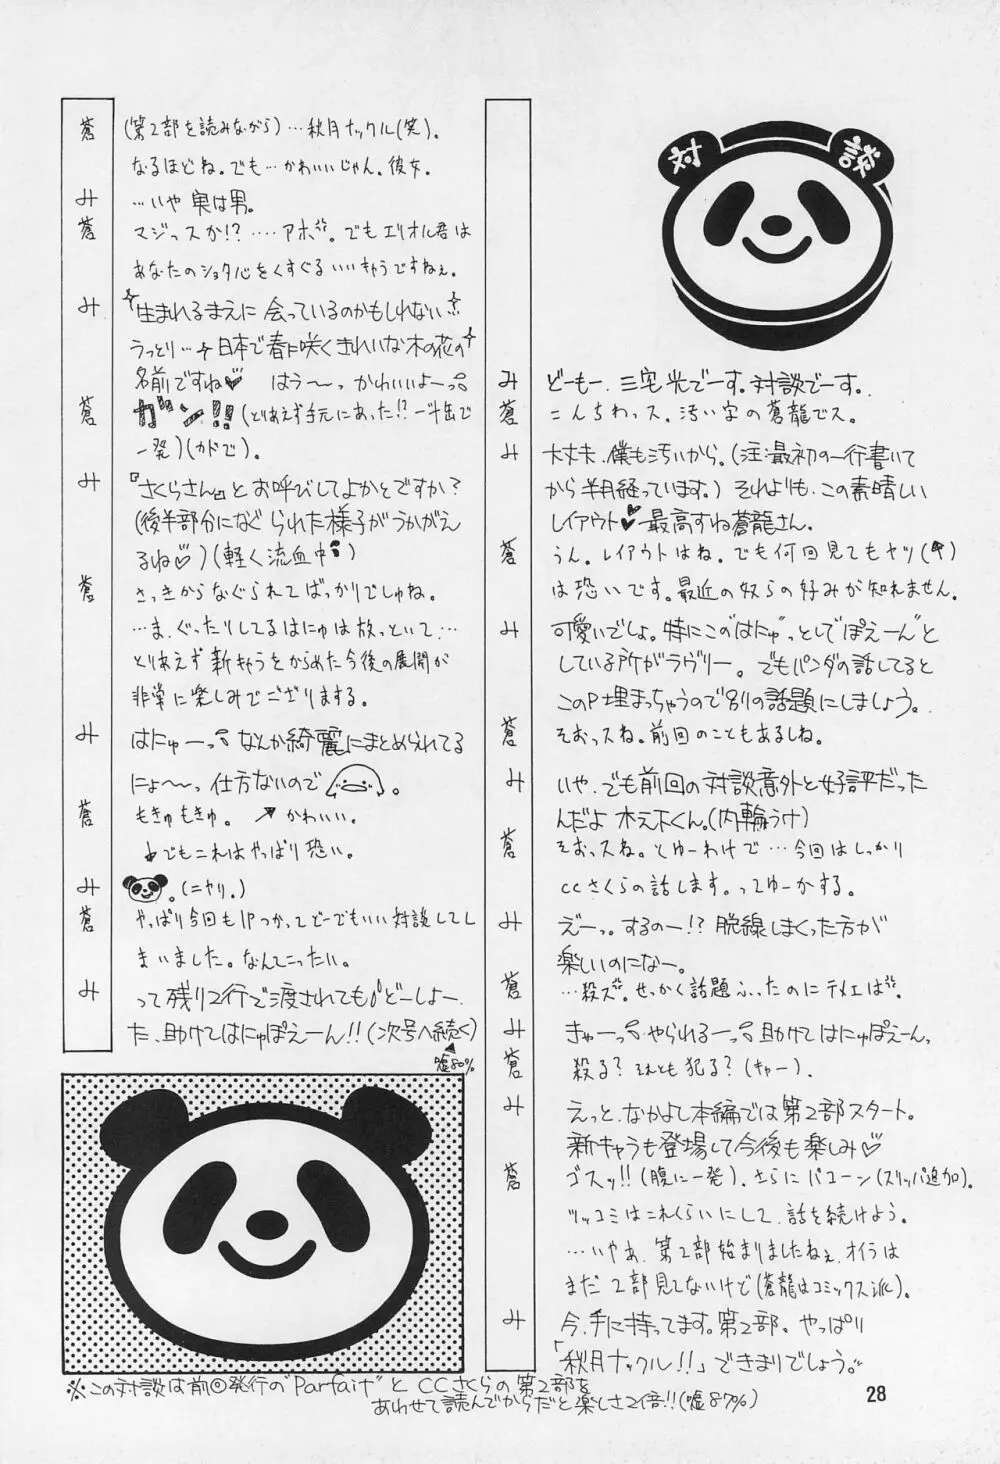 対談
み どーもー、三宅光でーす。対談でーす。
蒼 こんちわッス。汚い字の蒼龍でス。
み 大丈夫、僕も汚いから。(注:最初の一行書いて
から半月経っています。) それよりも、この素晴しい
レイアウト♥最高すね蒼龍さん。
蒼 うん。レイアウトはね。でも何回見てもヤツ( )
は恐いです。最近の奴らの好みが知れません。
み 可愛いでしょ。特にこの"はにゅ"っとして"ぽえーん"と
している所がラヴリー。でもパンダの話してると
このP埋まっちゃうので別の話題にしましょう。
蒼 そおっスね。前回のこともあるしね。
み いや、でも前回の対談意外と好評だった
んだよ木之下くん。(内輪うけ)
蒼 そおっスね。とゆーわけで…今回はしっかり
CCさくらの話します。ってゆーかする。
み えーっ。するのー!? 脱線しまくった方が
楽しいのになー。
蒼 …殺ズ。せっかく話題ふったのにテメエは゛。
み きゃーっ やられるーっ 助けてはにゅぽえーんっ
蒼 殺る?それとも犯る?(キャー)。
み えっと、なかよし本編では第2部スタート。
新キャラも登場して今後も楽しみ♡
蒼 ゴスッ!!(腹に一発)、さらにパコーン(スリッパ追加)。
ツッコミはこれくらいにして、話を続けよう。
…いやあ、第2部始まりましたねぇ、オイラは
まだ2部見てないけど(蒼龍はコミックス派)。
み 今、手に持ってます。第2部。やっぱり
「秋月ナックル!!」できまりでしょう。
蒼 (第2部を読みながら)…秋月ナックル(笑)。
なるほどね。でも…かわいいじゃん。彼女。
み …いや 実は男。
蒼 マジっスか!?….アホ゛。でもエリオル君は
あなたのショタ心をくすぐるいいキャラですねぇ。
み "生まれるまえに 会っているのかもしれない"
うっとり…日本で春に咲くきれいな木の花の
名前ですね♡ はうーっ かわいいよーっ
蒼 ガン!!(とりあえず手元にあった!?一斗缶で
一発)(カドで)。
み 『さくらさん』とお呼びしてよかとですか?
(後半部分になぐられた様子がうかがえ
るね♡)(軽く流血中)
蒼 さっきからなぐられてばっかりでしゅね。
…ま、ぐったりしてるはにゅは放っといて…
とりあえず新キャラをからめた今後の展開が
非常に楽しみでございまする。
み はにゅーっ なんか綺麗にまとめられてる
にょ〜っ 仕方ないので 。
蒼 もきゅもきゅ。 ↗かわいい。
でもこれはやっぱり恐い。
み 。(ニヤリ。)
蒼 やっぱり今回も1Pつかってどーでもいい対談してし
まいました。なんてこったい。
み って残り2行で渡されても♪どーしよー、
た、助けてはにゅぽえーん!!(次号へ続く)
嘘80%
※この対談は前回発行の"Parfait"とCCさくらの第2部を
あわせて読んでからだと楽しさ2倍!!(嘘87%)
28